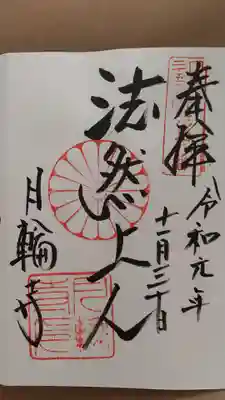 奉拝
令和元年
十一月三十日
法然上人
月輪寺